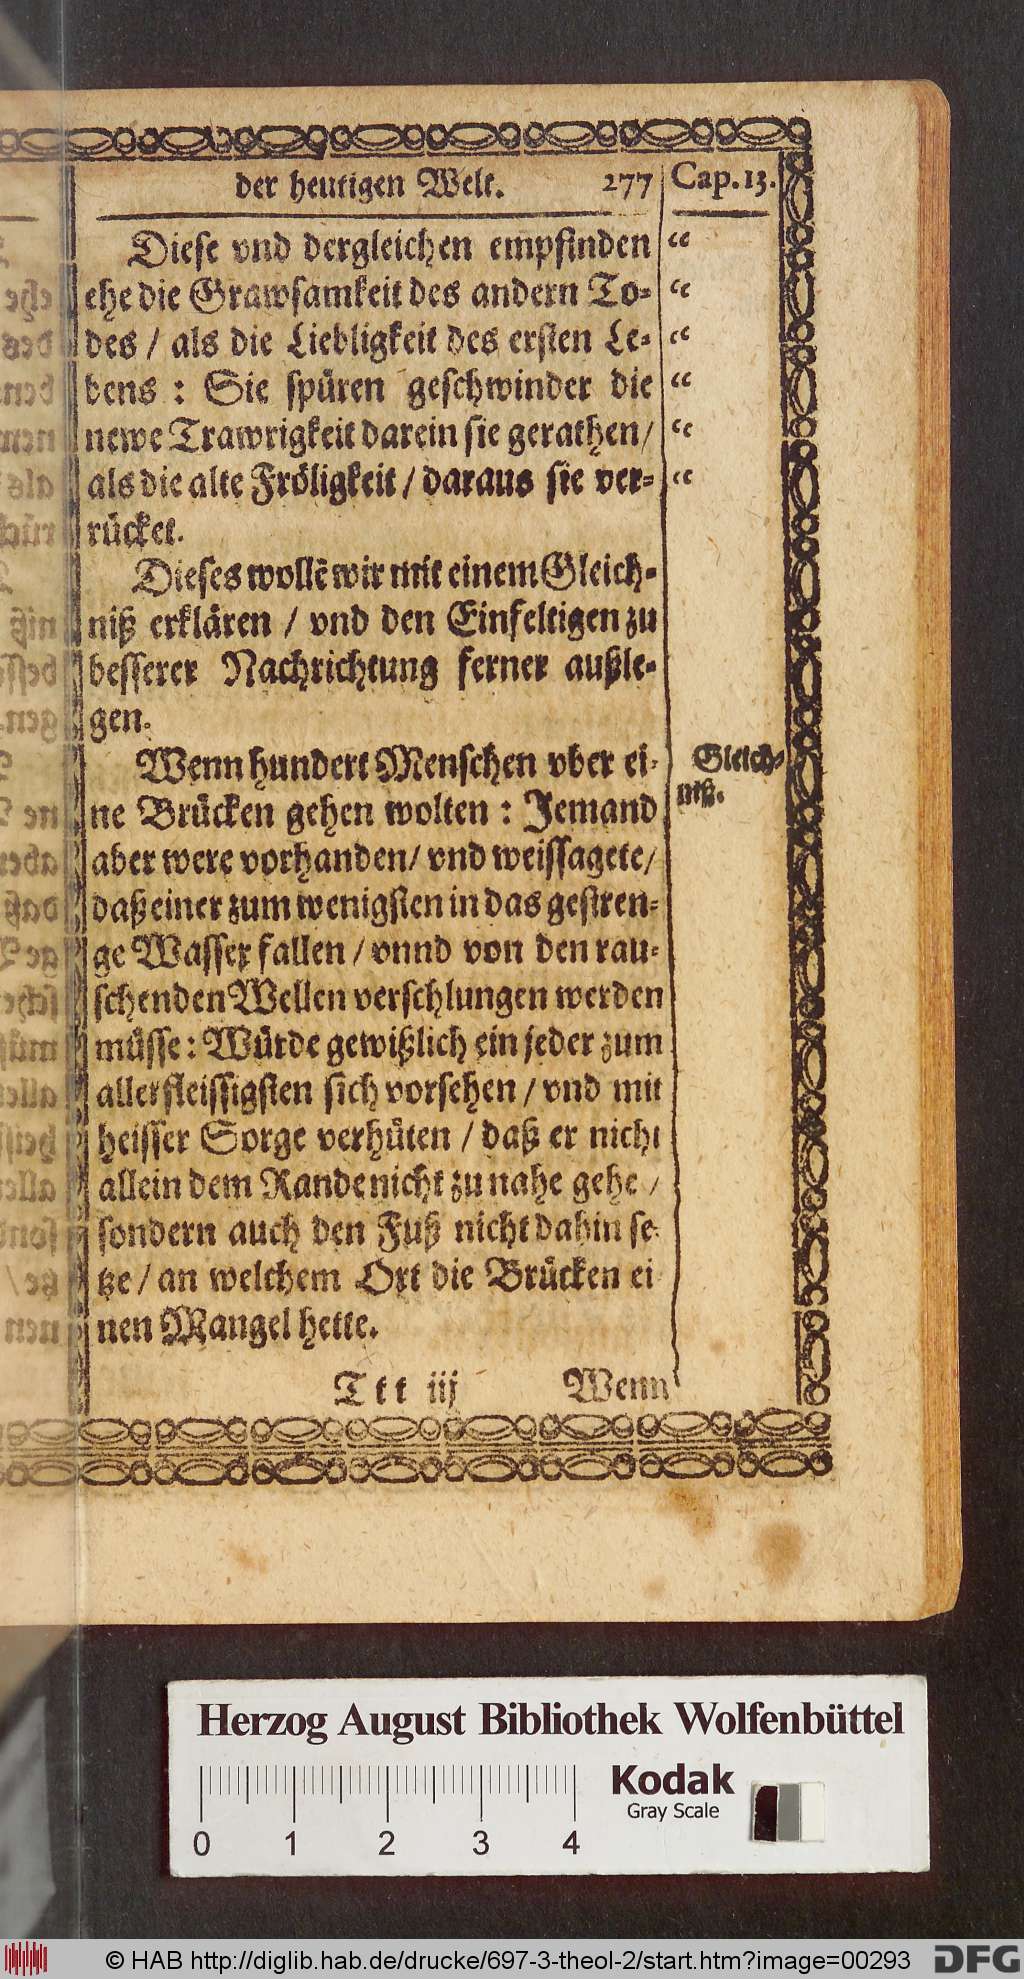 der heutigen Welt. 277 Cap. 13.
Diese vnd dergleichen empfinden “
ehe die Grawsamkeit des andern To- “
des / als die Liebligkeit des ersten Le- “
bens : Sie spüren geschwinder die “
newe Trawrigkeit darein sie gerathen / “
als die alte Fröligkeit / daraus sie ver- “
rücket.
Dieses wollẽ wir mit einem Gleich-
niß erklären / vnd den Einfeltigen zu
besserer Nachrichtung ferner außle-
gen.
Wenn hundert Menschen vber ei-
ne Brücken gehen wolten : Jemand
aber were vorhanden / vnd weissagete /
daß einer zum wenigsten in das gestren-
ge Wasser fallen / vnnd von den rau-
schenden Wellen verschlungen werden
müsse : Würde gewißlich ein jeder zum
allerfleissigsten sich vorsehen / vnd mit
heisser Sorge verhüten / daß er nicht
allein dem Rande nicht zu nahe gehe /
sondern auch den Fuß nicht dahin se-
tze / an welchem Ort die Brücken ei
nen Mangel hette.
Gleich-
niß.
Ttt iij Wenn
Herzog August Bibliothek Wolfenbüttel
0 1 2 3 4
Kodak
Gray Scale
© HAB http://diglib.hab.de/drucke/697-3-theol-2/start.htm?image=00293
DFG